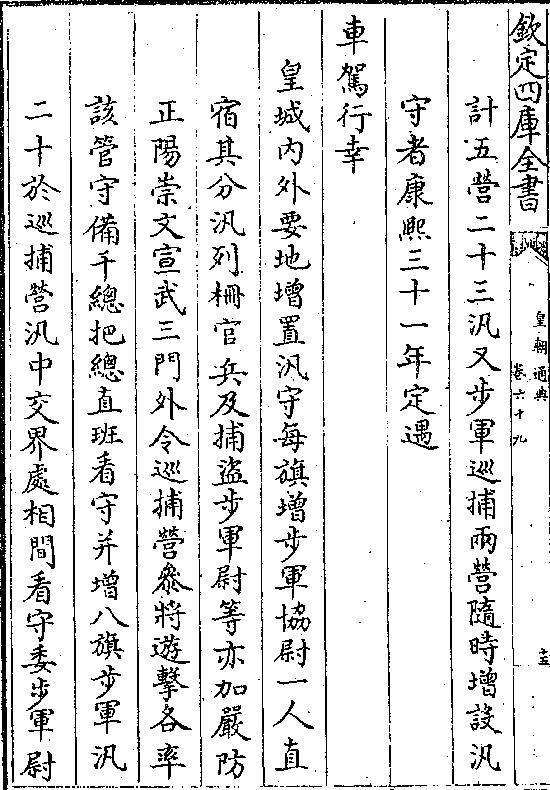 欽定四庫全書
皇朝通典
卷六十九
十五
計五營二十三汛又步軍巡捕兩營隨時增設汛
守者康熙三十一年定遇
車駕行幸
皇城内外要地增置汛守每旗增步軍協尉一人直
宿其分汛列柵官兵及捕盜步軍尉等亦加嚴防
正陽崇文宣武三門外令巡捕營叅將遊擊各率
該管守備千總把總直班看守并增八旗步軍汛
二十於巡捕營汛中交界處相間看守委步軍尉